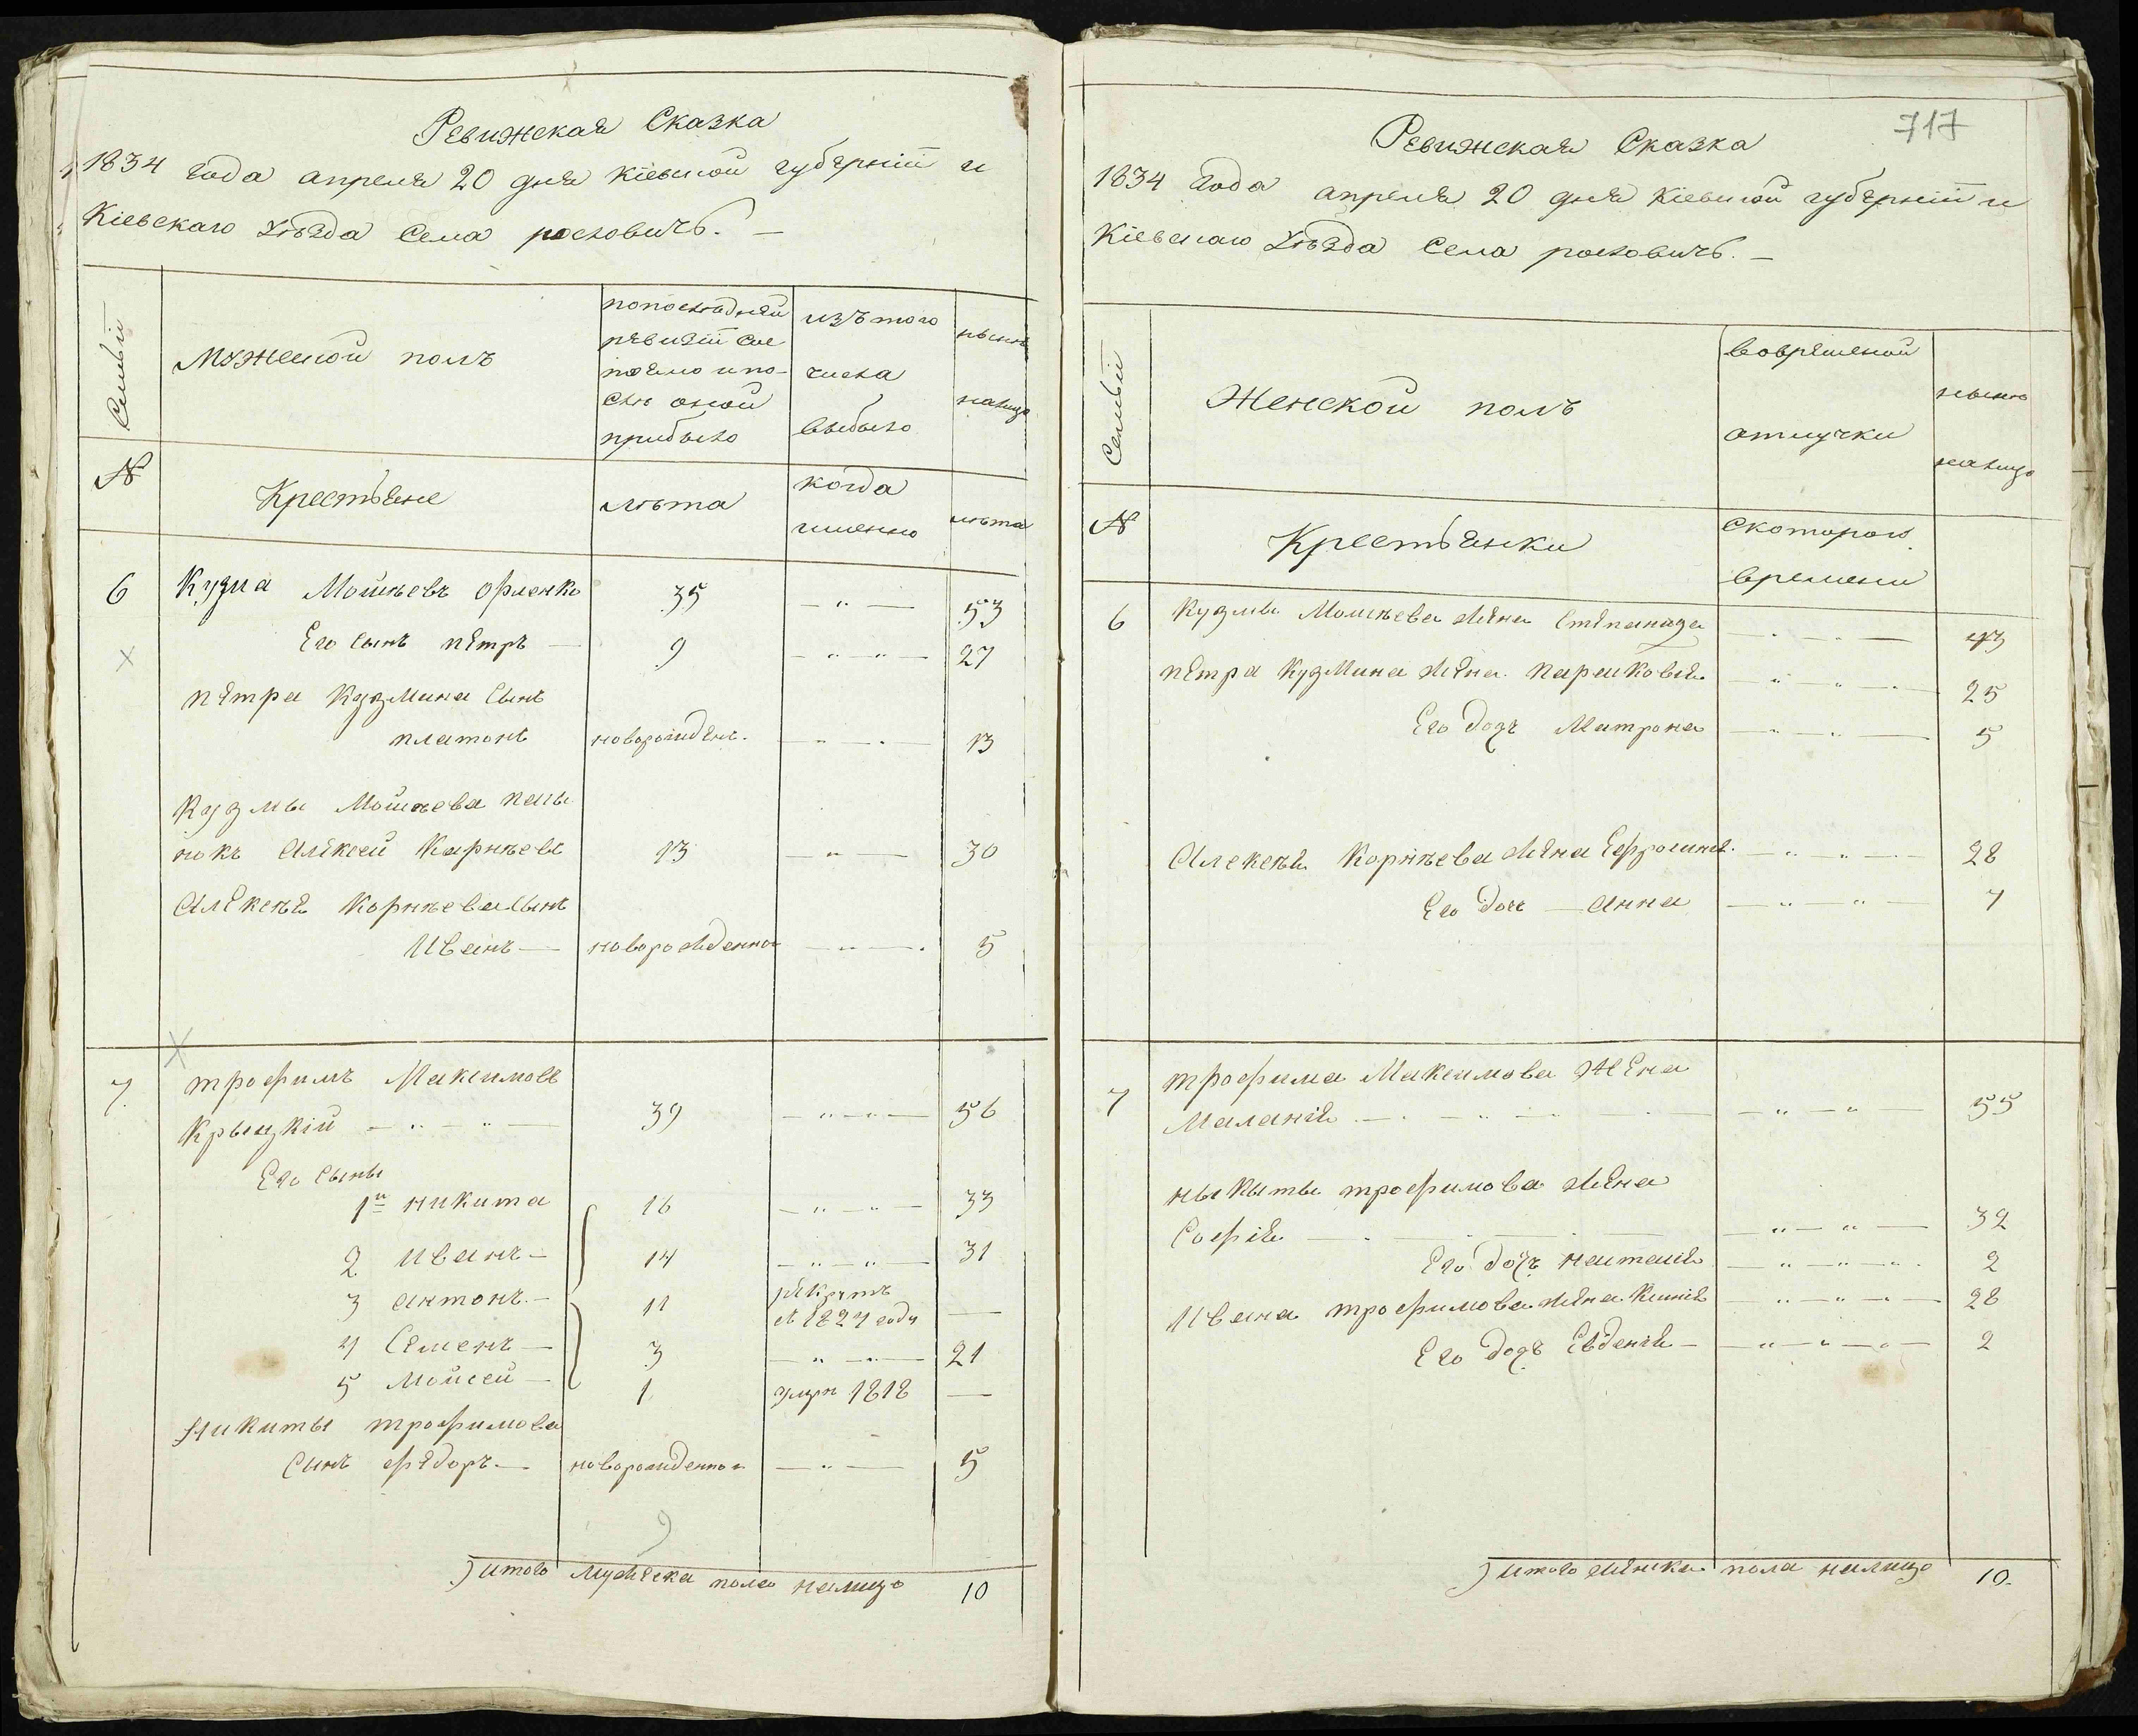 Ревижская Сказка
1834 года апреля 20 дня Кіевской губерніи и
Кіевскаго Уѣзда Села росховичъ. —
Семьи
Мужеской полъ
попоследней
ревизіи сос
тояло и по-
слѣ оной
прибыло
изъ того
числа
выбыло
нынѣ
налицо
№
Крестьяне
лѣта
когда
именно
лѣта
6 Кузма Мойсѣевъ 35 — " — 53
Его Сынъ пѣтръ — 9 — " " — 27
пѣтра Кузмина Сынъ
платонъ новорожденъ. — " — 13
Кузмы Мойсѣева пасы
нокъ Алѣксей Карнѣевъ 13 — " — 30
Алѣксѣя Корнѣева Сынъ
Иванъ — новорожденной — " — 5
7. трофимъ Максимовъ
Крыцкій — " — " — 39 — " — " — 56
Его Сыны
1й никита 16 — " — " — 33
2 иванъ — 14 — " — " — 31
3 антонъ — 11 рѣкрутъ в 1827 году —
4 Сѣменъ — 3 — " — " — 21
5 Мойсей — 1 умре 1818 —
Никиты трофимова
Сынъ фѣдоръ — новорожденной — " — 5
9
итого Мужѣска пола налицо 10
717
Ревижская Сказка
1834 года апреля 20 дня Кіевской губерніи и
Кіевскаго Уѣзда Села росховичъ. —
Семьи
Женской полъ
вовремѣной
отлучки
нынѣ
налицо
№
Крестьянки
Скотораго
времени
6 Кузмы Мойсѣева жѣна Стѣпанида — " — " — 43
пѣтра Кузмина жѣна парасковья — " — " — 25
Его дочъ Матрона — " — " — 5
Алексѣя Корнѣева жѣна Ефросиня — " — " — 28
Его дочъ — анна — " — " — 7
7 трофима Максимова жѣна
Маланія — " — " — 55
ныкыты трофимова жѣна
Софія — " — " — 32
Его дочъ наталія — " — " — 2
Ивана трофимова жѣна Ксинія — " — " — 28
Его дочъ Евдокія — " — " — 2
итого жѣнска пола налицо 10.